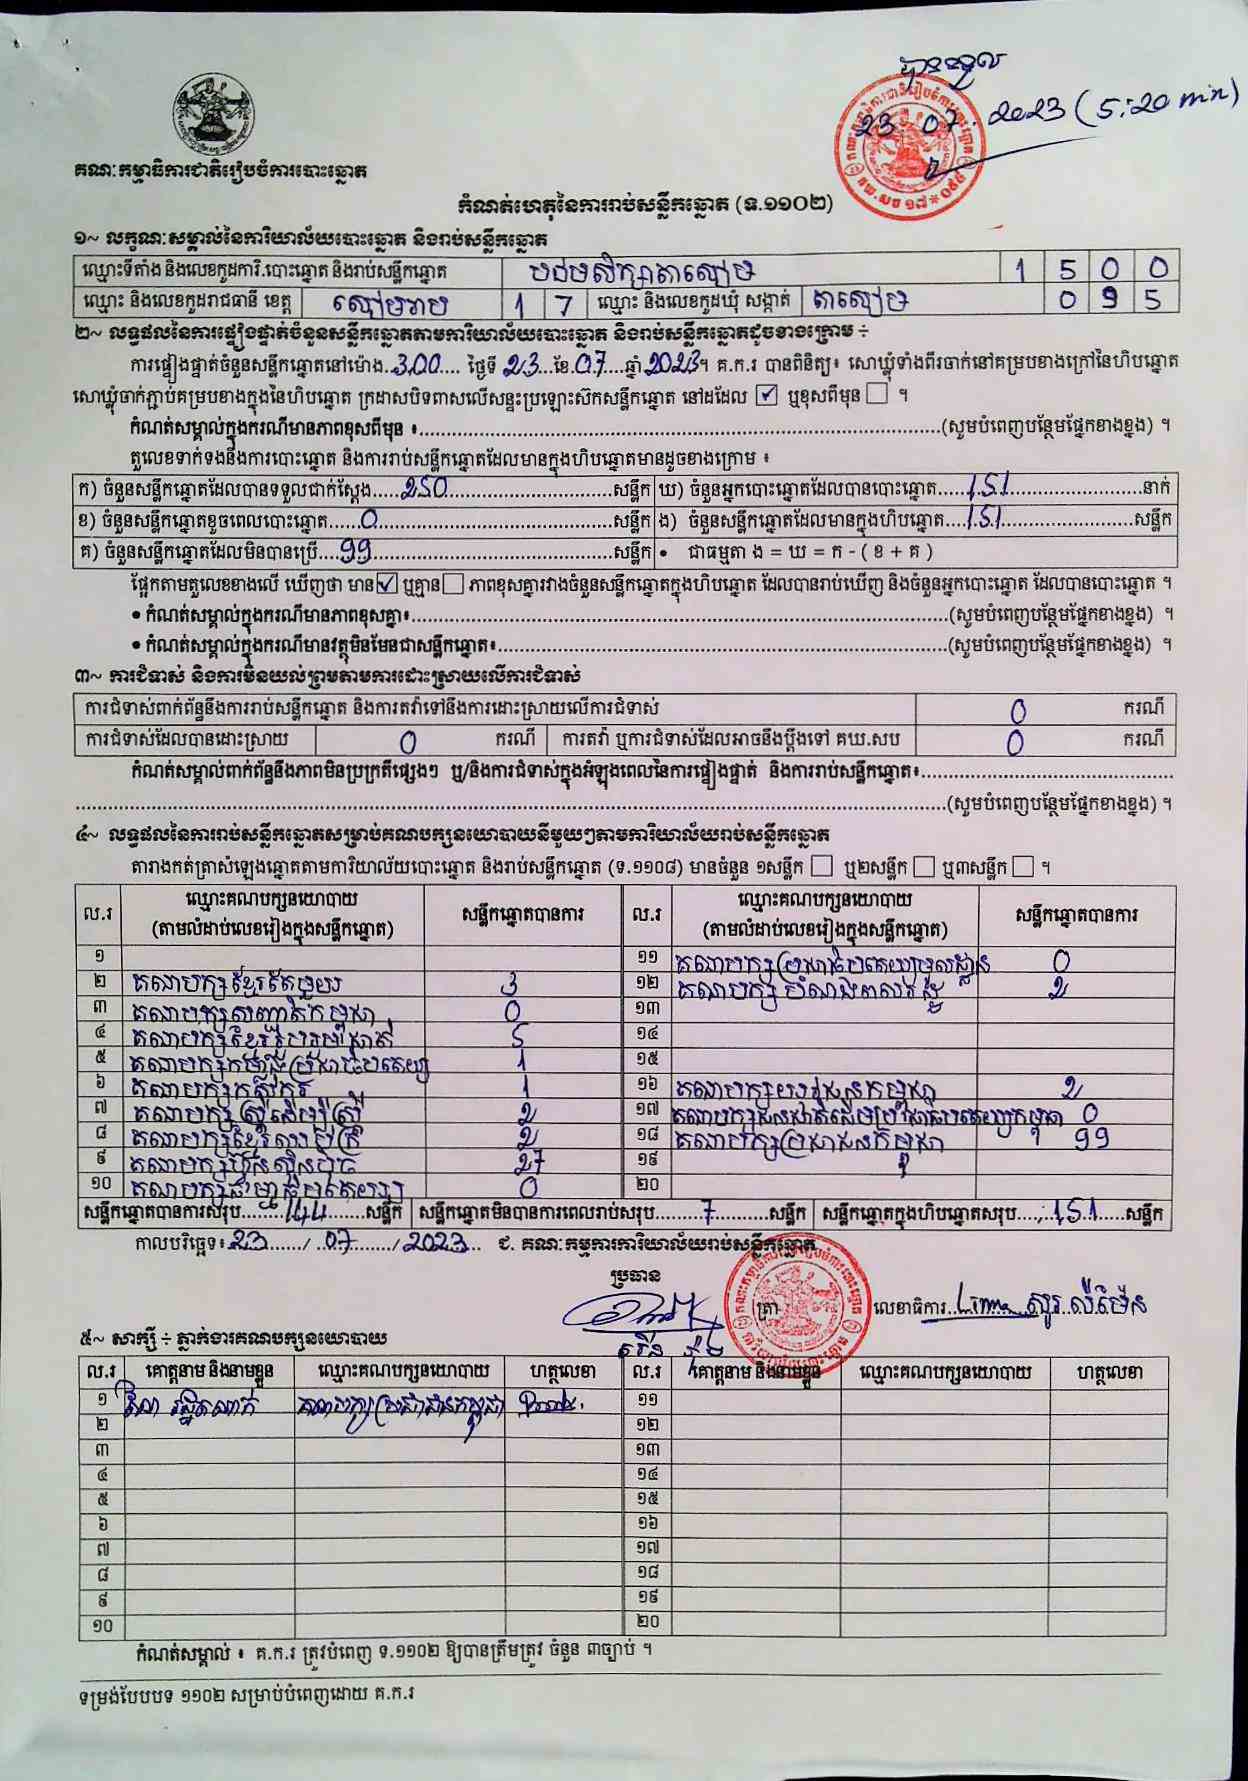 បានទទួល
23.07.2023 (5:20 min)
គណៈកម្មាធិការជាតិរៀបចំការបោះឆ្នោត
កំណត់ហេតុនៃការរាប់សន្លឹកឆ្នោត (ទ.១១០២)
១~ លក្ខណៈសម្គាល់នៃការិយាល័យបោះឆ្នោត និងរាប់សន្លឹកឆ្នោត
ឈ្មោះទីតាំង និងលេខកូដការិ.បោះឆ្នោត និងរាប់សន្លឹកឆ្នោត បឋមសិក្សាតាសៀម 1 5 0 0
ឈ្មោះ និងលេខកូដរាជធានី ខេត្ត សៀមរាប 1 7 ឈ្មោះ និងលេខកូដឃុំ សង្កាត់ តាសៀម 0 9 5
២~ លទ្ធផលនៃការផ្ទៀងផ្ទាត់ចំនួនសន្លឹកឆ្នោតតាមការិយាល័យបោះឆ្នោត និងរាប់សន្លឹកឆ្នោតដូចខាងក្រោម ÷
ការផ្ទៀងផ្ទាត់ចំនួនសន្លឹកឆ្នោតនៅម៉ោង 3:00 ថ្ងៃទី 23 ខែ 07 ឆ្នាំ 2023។ គ.ក.រ បានពិនិត្យ៖ សោឃ្លុំទាំងពីរចាក់នៅគម្របខាងក្រៅនៃហិបឆ្នោត
សោឃ្លុំចាក់ភ្ជាប់គម្របខាងក្នុងនៃហិបឆ្នោត ក្រដាសបិទពាសលើសន្ទះប្រឡោះស៊កសន្លឹកឆ្នោត នៅដដែល ☑ ឬខុសពីមុន ☐ ។
កំណត់សម្គាល់ក្នុងករណីមានភាពខុសពីមុន ៖ (សូមបំពេញបន្ថែមផ្នែកខាងខ្នង) ។
តួលេខទាក់ទងនឹងការបោះឆ្នោត និងការរាប់សន្លឹកឆ្នោតដែលមានក្នុងហិបឆ្នោតមានដូចខាងក្រោម ៖
ក) ចំនួនសន្លឹកឆ្នោតដែលបានទទួលជាក់ស្តែង 250 សន្លឹក ឃ) ចំនួនអ្នកបោះឆ្នោតដែលបានបោះឆ្នោត 151 នាក់
ខ) ចំនួនសន្លឹកឆ្នោតខូចពេលបោះឆ្នោត 0 សន្លឹក ង) ចំនួនសន្លឹកឆ្នោតដែលមានក្នុងហិបឆ្នោត 151 សន្លឹក
គ) ចំនួនសន្លឹកឆ្នោតដែលមិនបានប្រើ 99 សន្លឹក • ជាធម្មតា ង = ឃ = ក - ( ខ + គ )
ផ្អែកតាមតួលេខខាងលើ ឃើញថា មាន ☑ ឬគ្មាន ☐ ភាពខុសគ្នារវាងចំនួនសន្លឹកឆ្នោតក្នុងហិបឆ្នោត ដែលបានរាប់ឃើញ និងចំនួនអ្នកបោះឆ្នោត ដែលបានបោះឆ្នោត ។
• កំណត់សម្គាល់ក្នុងករណីមានភាពខុសគ្នា៖ (សូមបំពេញបន្ថែមផ្នែកខាងខ្នង) ។
• កំណត់សម្គាល់ក្នុងករណីមានវត្ថុមិនមែនជាសន្លឹកឆ្នោត៖ (សូមបំពេញបន្ថែមផ្នែកខាងខ្នង) ។
៣~ ការជំទាស់ និងការមិនយល់ព្រមតាមការដោះស្រាយលើការជំទាស់
ការជំទាស់ពាក់ព័ន្ធនឹងការរាប់សន្លឹកឆ្នោត និងការតវ៉ាទៅនឹងការដោះស្រាយលើការជំទាស់ 0 ករណី
ការជំទាស់ដែលបានដោះស្រាយ 0 ករណី ការតវ៉ា ឬការជំទាស់ដែលអាចនឹងប្តឹងទៅ គឃ.សប 0 ករណី
កំណត់សម្គាល់ពាក់ព័ន្ធនឹងភាពមិនប្រក្រតីផ្សេងៗ ឬ/និងការជំទាស់ក្នុងអំឡុងពេលនៃការផ្ទៀងផ្ទាត់ និងការរាប់សន្លឹកឆ្នោត៖
(សូមបំពេញបន្ថែមផ្នែកខាងខ្នង) ។
៤~ លទ្ធផលនៃការរាប់សន្លឹកឆ្នោតសម្រាប់គណបក្សនយោបាយនីមួយៗតាមការិយាល័យរាប់សន្លឹកឆ្នោត
តារាងកត់ត្រាសំឡេងឆ្នោតតាមការិយាល័យបោះឆ្នោត និងរាប់សន្លឹកឆ្នោត (ទ.១១០៨) មានចំនួន ១សន្លឹក ☐ ឬ២សន្លឹក ☐ ឬ៣សន្លឹក ☐ ។
ល.រ ឈ្មោះគណបក្សនយោបាយ (តាមលំដាប់លេខរៀងក្នុងសន្លឹកឆ្នោត) សន្លឹកឆ្នោតបានការ ល.រ ឈ្មោះគណបក្សនយោបាយ (តាមលំដាប់លេខរៀងក្នុងសន្លឹកឆ្នោត) សន្លឹកឆ្នោតបានការ
១ ១១ គណបក្សប្រជាធិបតេយ្យមូលដ្ឋាន 0
២ គណបក្សខ្មែរតែមួយ 3 ១២ គណបក្ស បំណងពលរដ្ឋ 2
៣ គណបក្សសញ្ជាតិកម្ពុជា 0 ១៣
៤ គណបក្សខ្មែររួបរួមជាតិ 5 ១៤
៥ គណបក្សកម្លាំងប្រជាធិបតេយ្យ 1 ១៥
៦ គណបក្សកសិករ 1 ១៦ គណបក្សយុវជនកម្ពុជា 2
៧ គណបក្សស្ត្រីដើម្បីស្ត្រី 2 ១៧ គណបក្សជនជាតិដើមប្រជាធិបតេយ្យកម្ពុជា 0
៨ គណបក្សខ្មែរឈប់ក្រ 2 ១៨ គណបក្សប្រជាជនកម្ពុជា 99
៩ គណបក្សហ្វ៊ុនស៊ិនប៉ិច 27 ១៩
១០ គណបក្សធម្មាធិបតេយ្យ 0 ២០
សន្លឹកឆ្នោតបានការសរុប 144 សន្លឹក សន្លឹកឆ្នោតមិនបានការពេលរាប់សរុប 7 សន្លឹក សន្លឹកឆ្នោតក្នុងហិបឆ្នោតសរុប 151 សន្លឹក
កាលបរិច្ឆេទ៖ 23 / 07 / 2023 ជ. គណៈកម្មការការិយាល័យរាប់សន្លឹកឆ្នោត
ប្រធាន
ត្រា លេខាធិការ
៥~ សាក្សី ÷ ភ្នាក់ងារគណបក្សនយោបាយ
ល.រ គោត្តនាម និងនាមខ្លួន ឈ្មោះគណបក្សនយោបាយ ហត្ថលេខា ល.រ គោត្តនាម និងនាមខ្លួន ឈ្មោះគណបក្សនយោបាយ ហត្ថលេខា
១ គណបក្សប្រជាជនកម្ពុជា ១១
២ ១២
៣ ១៣
៤ ១៤
៥ ១៥
៦ ១៦
៧ ១៧
៨ ១៨
៩ ១៩
១០ ២០
កំណត់សម្គាល់ ៖ គ.ក.រ ត្រូវបំពេញ ទ.១១០២ ឱ្យបានត្រឹមត្រូវ ចំនួន ៣ច្បាប់ ។
ទម្រង់បែបបទ ១១០២ សម្រាប់បំពេញដោយ គ.ក.រ